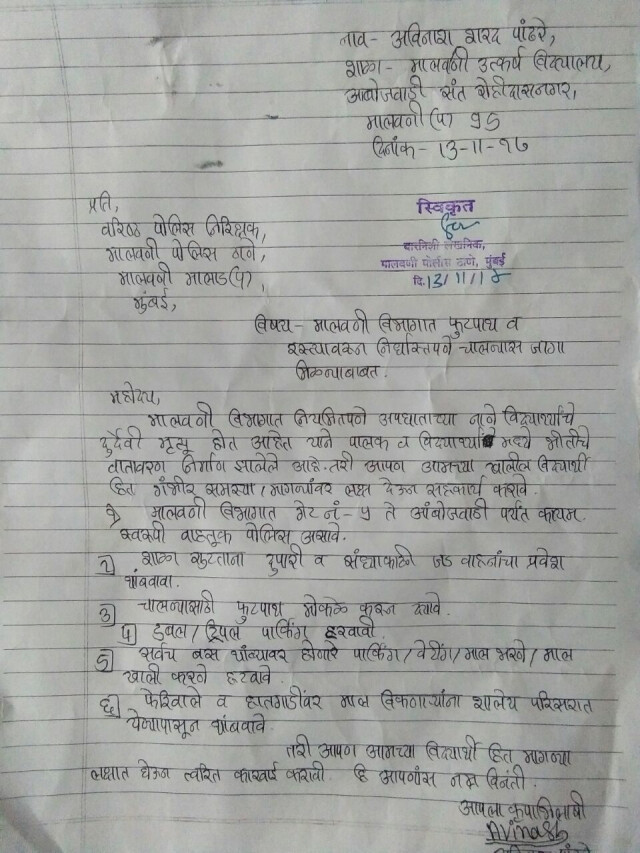 नाव - अविनाश शरद पांढरे,
शाळा - मालवणी उत्कर्ष विद्यालय,
आंबोजवाडी संत रोहीदासनगर,
मालवनी (प) ९५
दिनांक - १३-११-१७
प्रति,
वरिष्ठ पोलिस निरिक्षक,
मालवनी पोलिस ठाणे,
मालवनी मालाड (प),
मुंबई,
स्विकृत
ठाणे, मुंबई
दि. 13/11/1
विषय - मालवनी विभागात फुटपाथ व
रस्त्यावरून निर्धास्तपने चालन्यास जागा
मिळन्याबाबत.
महोदय,
मालवनी विभागात नियमितपने अपघाताच्या नाने विद्यार्थ्यांचे
दुर्दैवी मृत्यू होत आहेत याने पालक व विद्यार्थ्यां मध्ये भीतीचे
वातावरण निर्माण झालेले आहे. तरी आपण आमच्या खालील विद्यार्थी
हित गंभीर समस्या / मागन्यांवर लक्ष देऊन सहकार्य करावे.
१) मालवनी विभागात गेट नं - ५ ते आंबोजवाडी पर्यंत कायम
स्वरुपी वाहतूक पोलिस असावे.
२) शाळा सुटताना दुपारी व संध्याकाळी जड वाहनांचा प्रवेश
थांबवावा.
३) चालन्यासाठी फुटपाथ मोकळे करुन द्यावे.
४) डबल / ट्रिपल पार्किंग हटवावी
5) सर्वच बस थांब्यावर होणारे पार्किंग / वेटींग / माल भरने / माल
खाली करने हटवावे.
६) फेरिवाले व हातगाडीवर माल विकणाऱ्यांना शालेय परिसरात
येन्यापासून थांबवावे.
तरी आपण आमच्या विद्यार्थी हित मागन्या
लक्षात घेऊन त्वरित कारवाई करावी. हि आपणांस नम्र विनंती.
आपला कृपाभिलाषी
Avinash